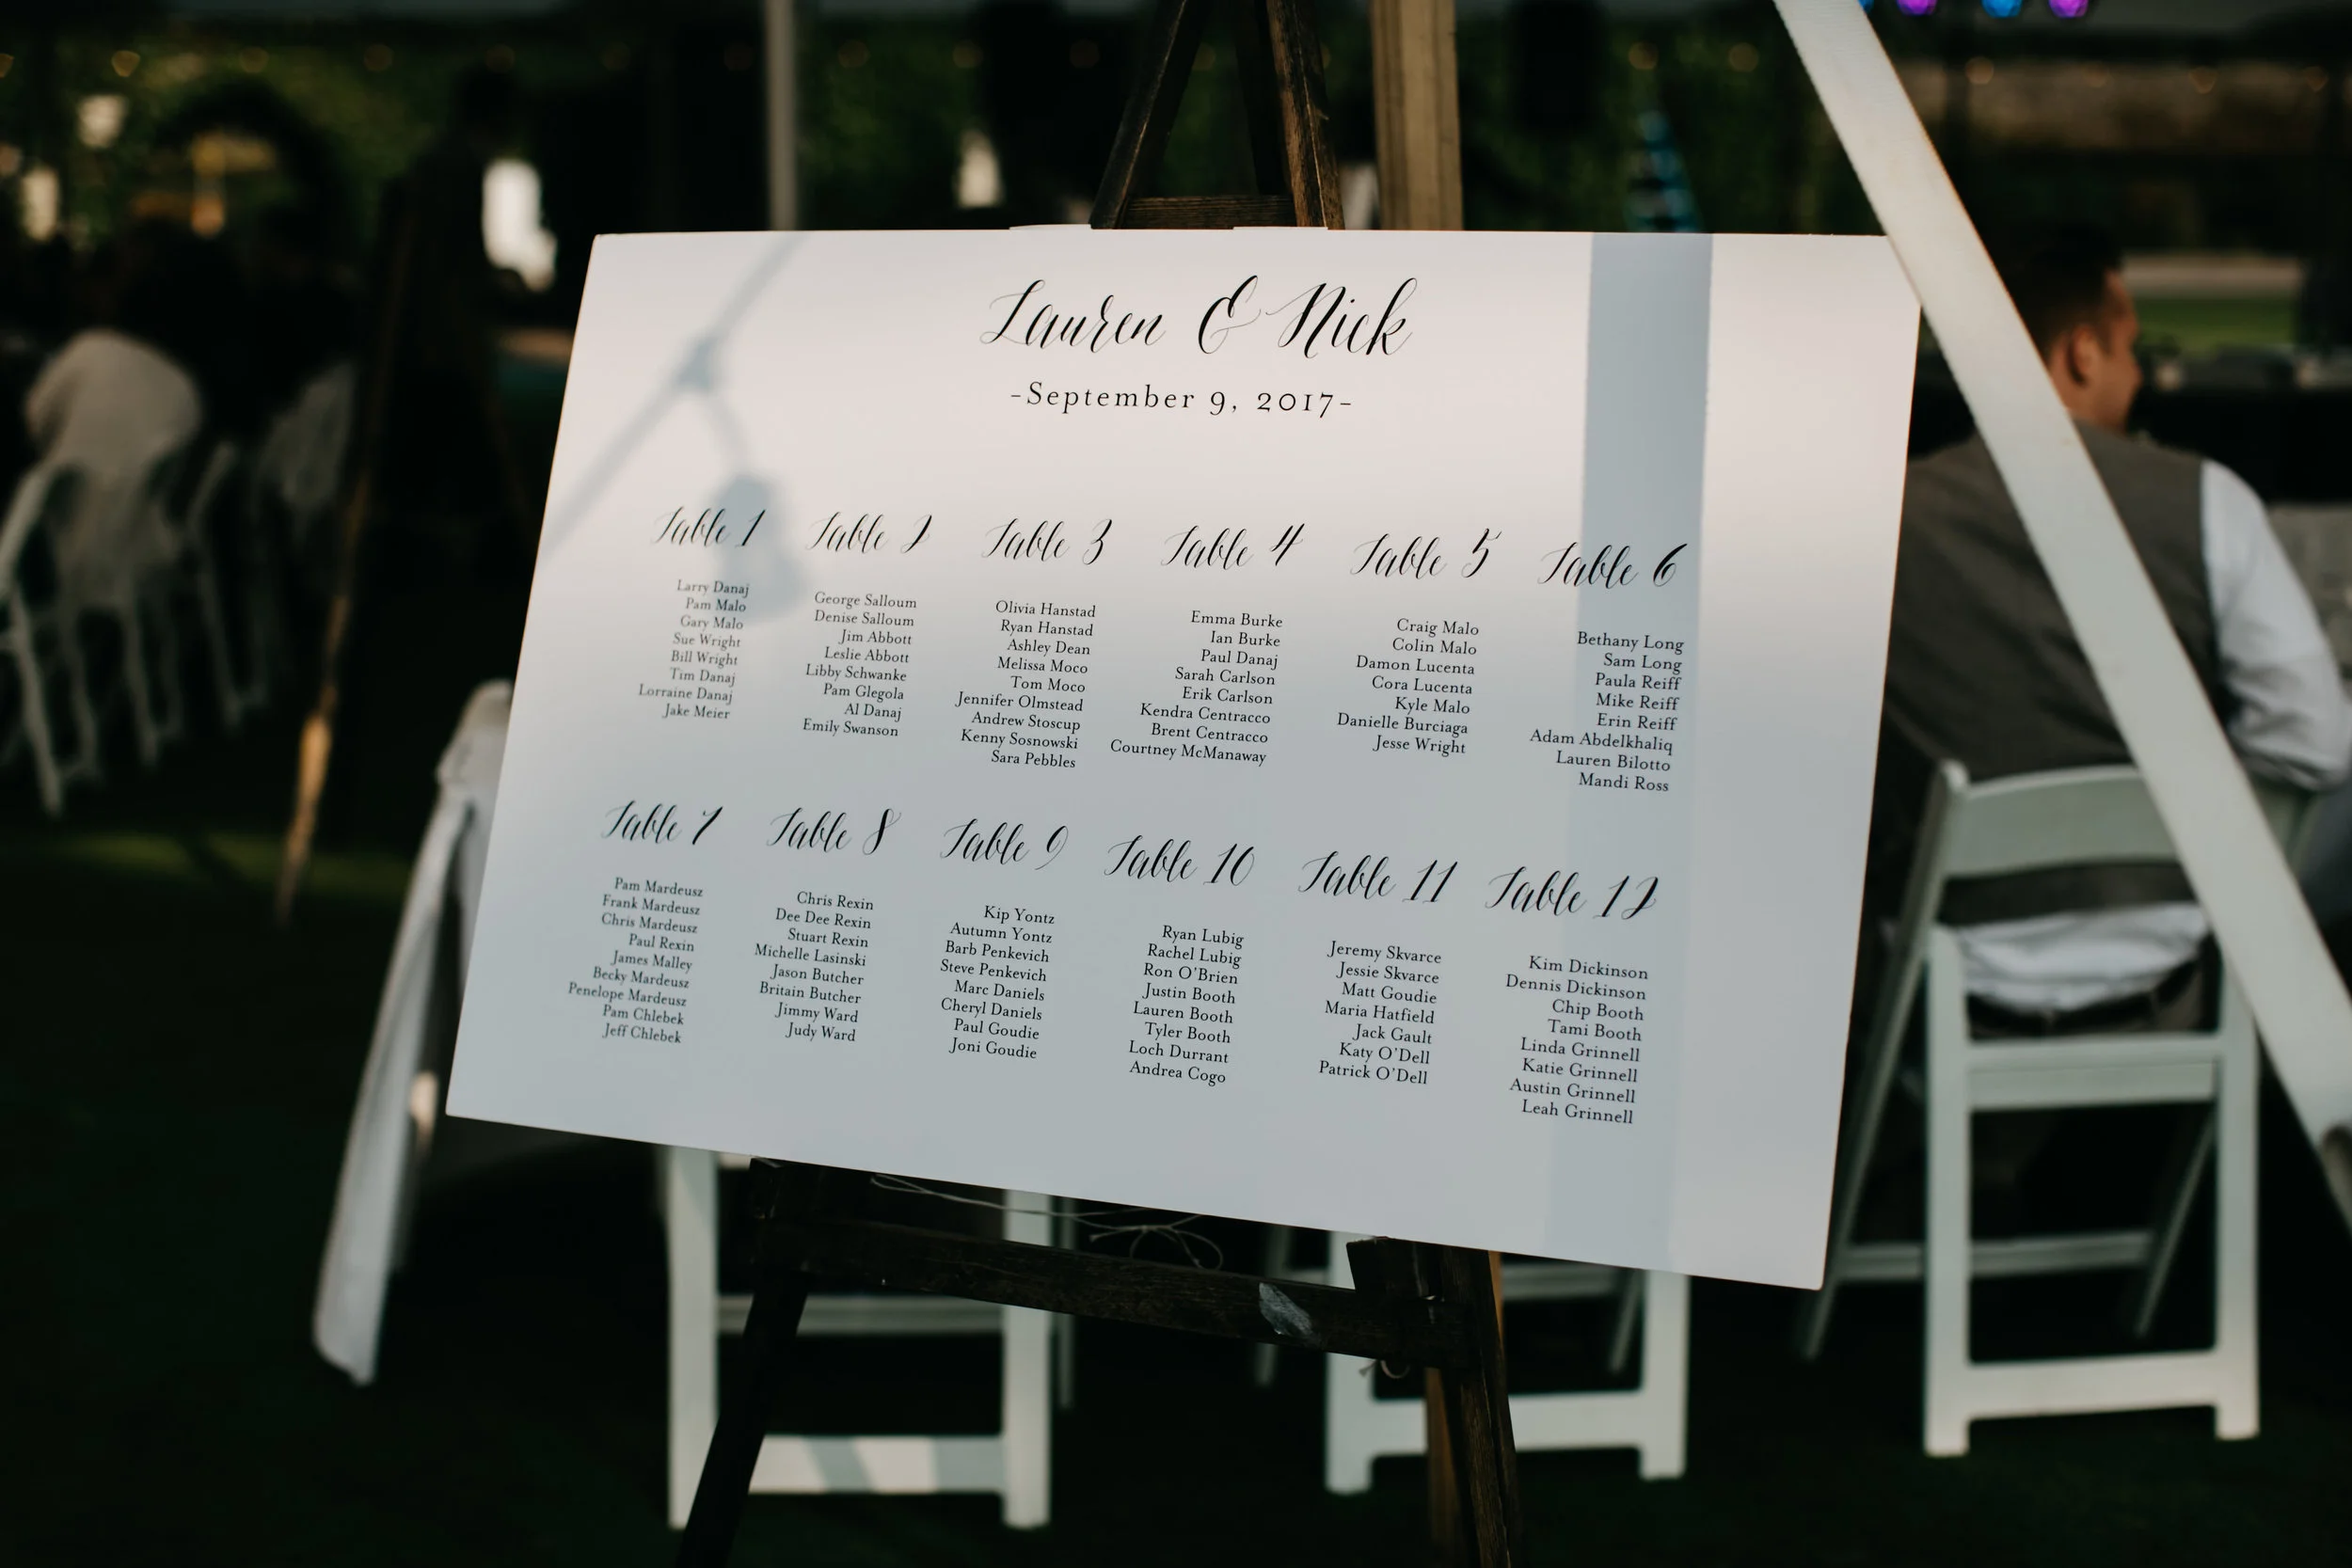 Lauren & Nick
-September 9, 2017-
Table 1
Larry Danaj
Pam Malo
Gary Malo
Sue Wright
Bill Wright
Tim Danaj
Lorraine Danaj
Jake Meier
Table 2
George Salloum
Denise Salloum
Jim Abbott
Leslie Abbott
Libby Schwanke
Pam Glegola
Al Danaj
Emily Swanson
Table 3
Olivia Hanstad
Ryan Hanstad
Ashley Dean
Melissa Moco
Tom Moco
Jennifer Olmstead
Andrew Stoscup
Kenny Sosnowski
Sara Pebbles
Table 4
Emma Burke
Ian Burke
Paul Danaj
Sarah Carlson
Erik Carlson
Kendra Centracco
Brent Centracco
Courtney McManaway
Table 5
Craig Malo
Colin Malo
Damon Lucenta
Cora Lucenta
Kyle Malo
Danielle Burciaga
Jesse Wright
Table 6
Bethany Long
Sam Long
Paula Reiff
Mike Reiff
Erin Reiff
Adam Abdelkhaliq
Lauren Bilotto
Mandi Ross
Table 7
Pam Mardeusz
Frank Mardeusz
Chris Mardeusz
Paul Rexin
James Malley
Becky Mardeusz
Penelope Mardeusz
Pam Chlebek
Jeff Chlebek
Table 8
Chris Rexin
Dee Dee Rexin
Stuart Rexin
Michelle Lasinski
Jason Butcher
Britain Butcher
Jimmy Ward
Judy Ward
Table 9
Kip Yontz
Autumn Yontz
Barb Penkevich
Steve Penkevich
Marc Daniels
Cheryl Daniels
Paul Goudie
Joni Goudie
Table 10
Ryan Lubig
Rachel Lubig
Ron O'Brien
Justin Booth
Lauren Booth
Tyler Booth
Loch Durrant
Andrea Cogo
Table 11
Jeremy Skvarce
Jessie Skvarce
Matt Goudie
Maria Hatfield
Jack Gault
Katy O'Dell
Patrick O'Dell
Table 12
Kim Dickinson
Dennis Dickinson
Chip Booth
Tami Booth
Linda Grinnell
Katie Grinnell
Austin Grinnell
Leah Grinnell